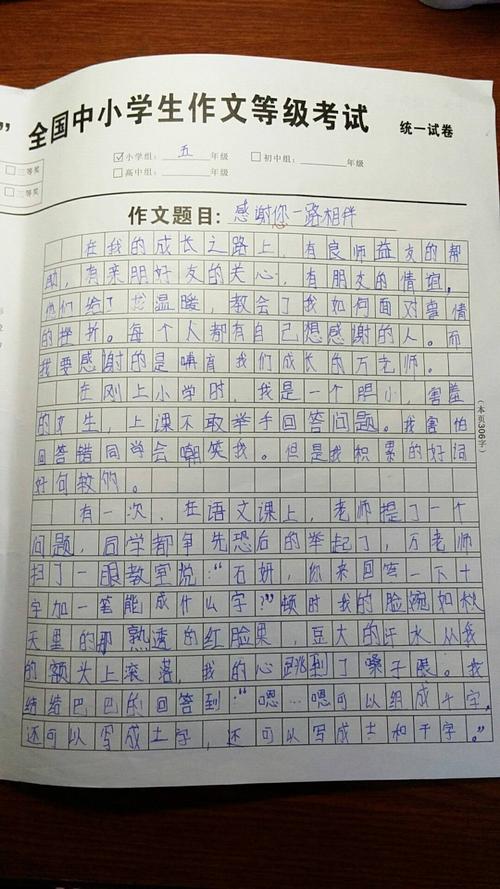 全国中小学生作文等级考试 统一试卷
二等奖
三等奖
☑小学组：五年级 □初中组：年级
□高中组：年级
作文题目：感谢你一路相伴
在我的成长之路上，有良师益友的帮
助，有亲朋好友的关心，有朋友的情谊，
他们给了我温暖，教会了我如何面对事情
的挫折。每个人都有自己想感谢的人。而
我要感谢的是哺育我们成长的万老师。
在刚上小学时，我是一个胆小，害羞
的女生，上课不敢举手回答问题。我害怕
回答错同学会嘲笑我。但是我积累的好词
好句较多。
有一次，在语文课上，老师提了一个
问题，同学都争先恐后的举起了，万老师
扫了一眼教室说：“石妍，你来回答一下十
字加一笔能成什么字？”顿时我的脸婉如秋
天里的那熟透的红脸果，豆大的汗水从我
的额头上滚落，我的心跳到了嗓子眼。我
结结巴巴的回答到：“嗯…嗯可以组成千字，
还可以写成土字，还可以写成士和干字。”
（本页306字）